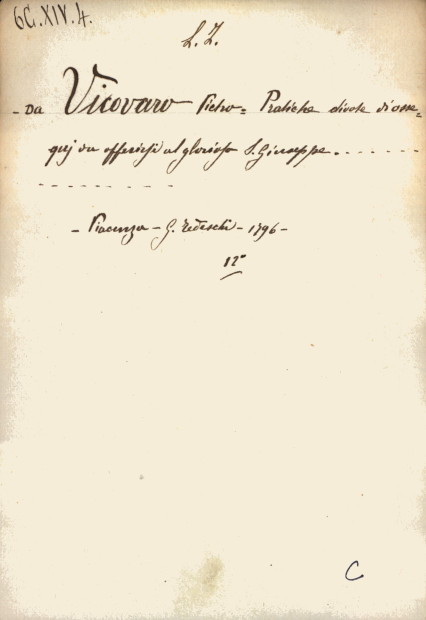 6C.XIV.4.
L. Z.
- Da Vicovaro Pietro = Pratiche divote d'osse=
quj da offerirsi al glorioso S. Giuseppe . . . . . . .
- - - - - - - - - -
- Piacenza - G. Tedeschi - 1796 -
12°
C